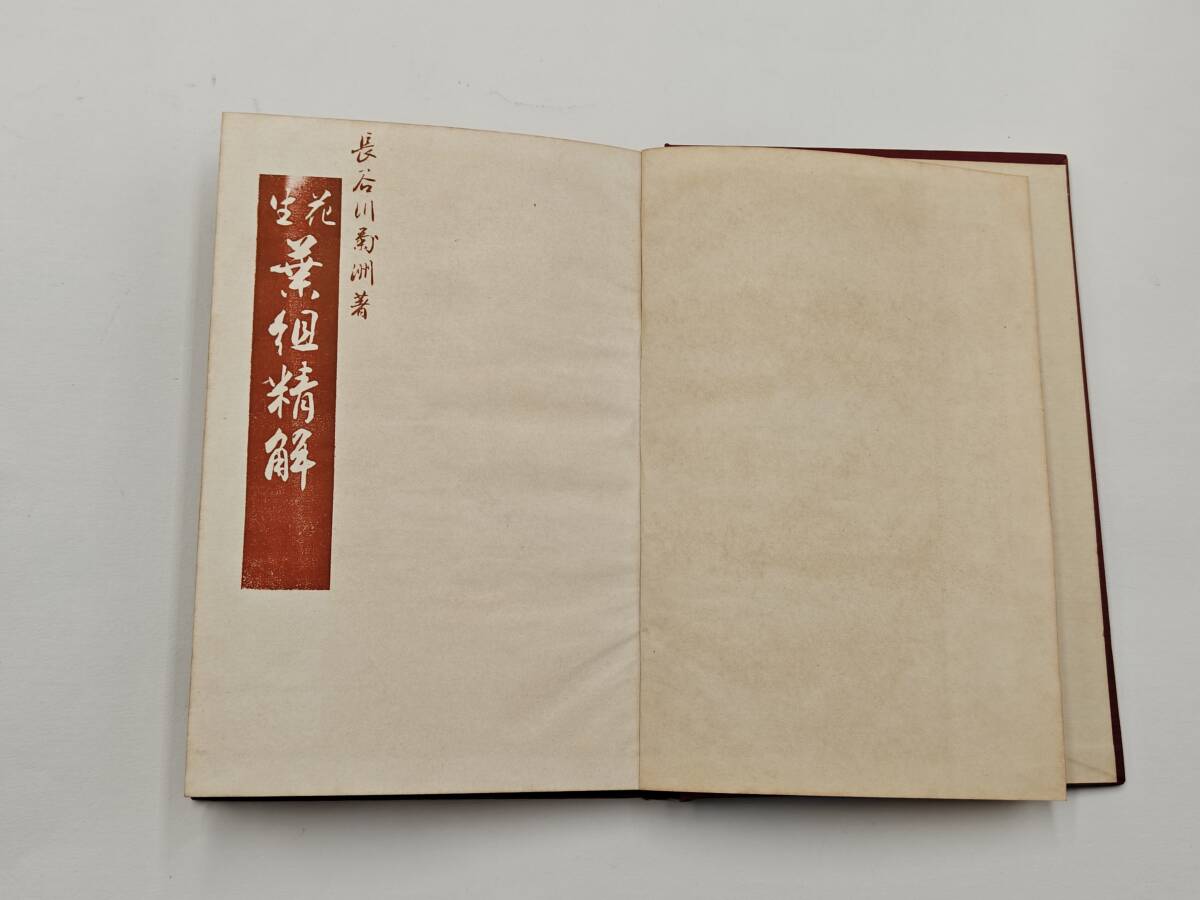 長谷川菊洲著
花生
葉組精解